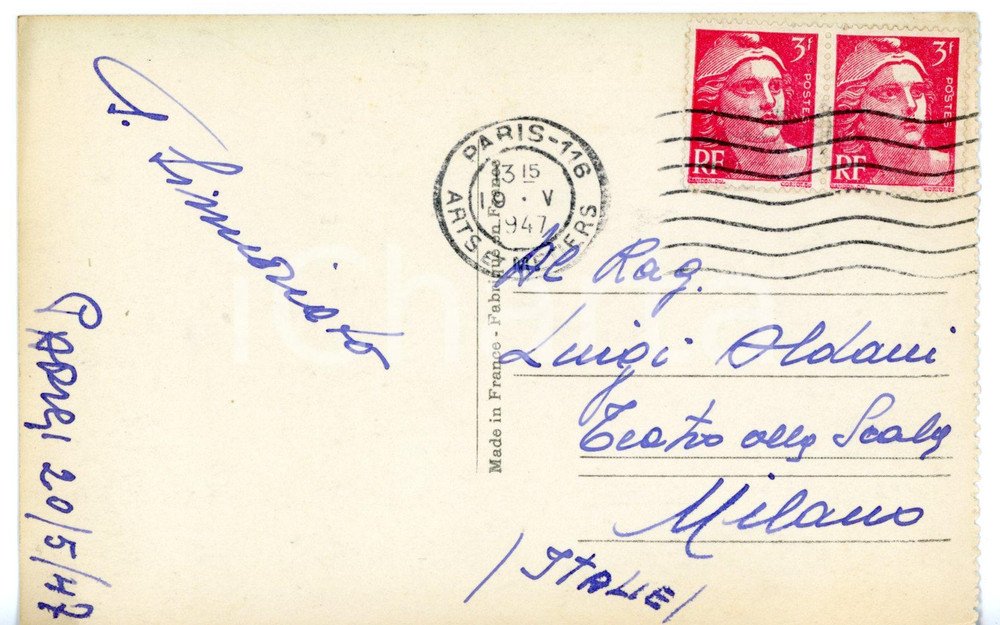 3f
POSTES
RF
3f
POSTES
RF
PARIS-116
13 15
V
1947
ARTS ET M
ERS
Made in France - Fabriqué en France
Al Rag.
Luigi Oldani
Teatro alla Scala
Milano
/ITALIE/
G.
PARIGI 20/5/47